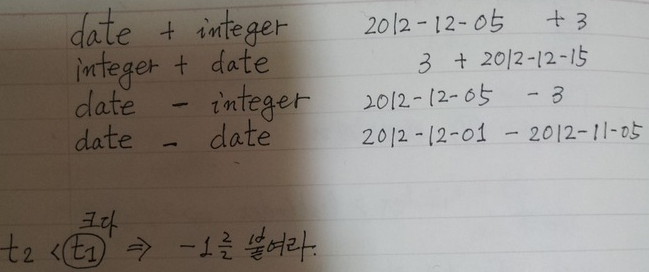 date + integer 2012-12-05 + 3
integer + date 3 + 2012-12-15
date - integer 2012-12-05 - 3
date - date 2012-12-01 - 2012-11-05
크다
t2 < t1 ⇒ -1